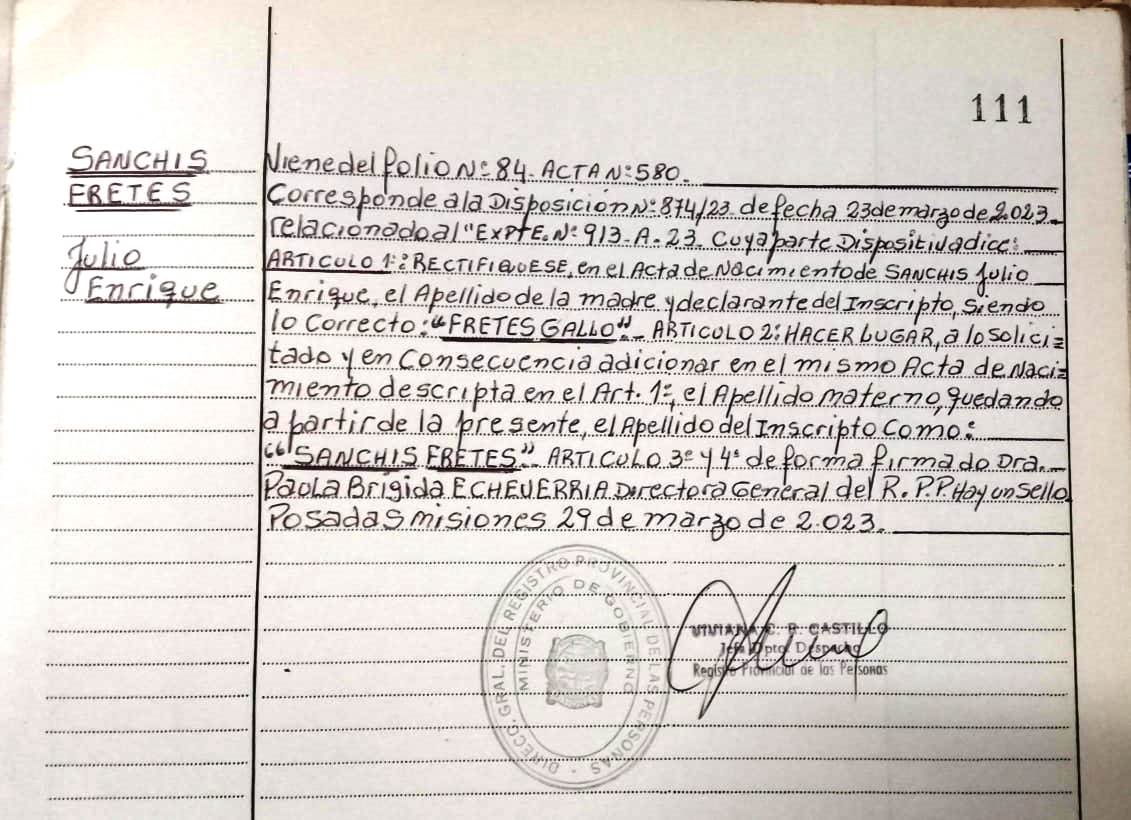 111
SANCHIS
FRETES
Julio
Enrique
Viene del folio Nº 84. ACTA Nº 580.
Corresponde a la Disposición Nº 874/23 de fecha 23 de marzo de 2.023
relacionado al "EXPTE. Nº 913-A-23. Cuya parte Dispositiva dice:
ARTICULO 1º: RECTIFIQUESE, en el Acta de Nacimiento de SANCHIS Julio
Enrique, el Apellido de la madre y declarante del Inscripto, Siendo
lo Correcto: "FRETES GALLO" - ARTICULO 2: HACER LUGAR, a lo Solici=
tado y en Consecuencia adicionar en el mismo Acta de Naci=
miento descripta en el Art. 1º, el Apellido materno, quedando
a partir de la presente, el Apellido del Inscripto Como:
"SANCHIS FRETES" ARTICULO 3º y 4º de forma firmado Dra.
Paola Brigida ECHEVERRIA Directora General del R.P.P. Hay un Sello
Posadas misiones 29 de marzo de 2.023.
DIRECC. GRAL. DEL REGISTRO PROVINCIAL DE LAS PERSONAS
MINISTERIO DE GOBIERNO
VIVIANA C. R. CASTILLO
Jefa Dpto. Despacho
Registro Provincial de las Personas